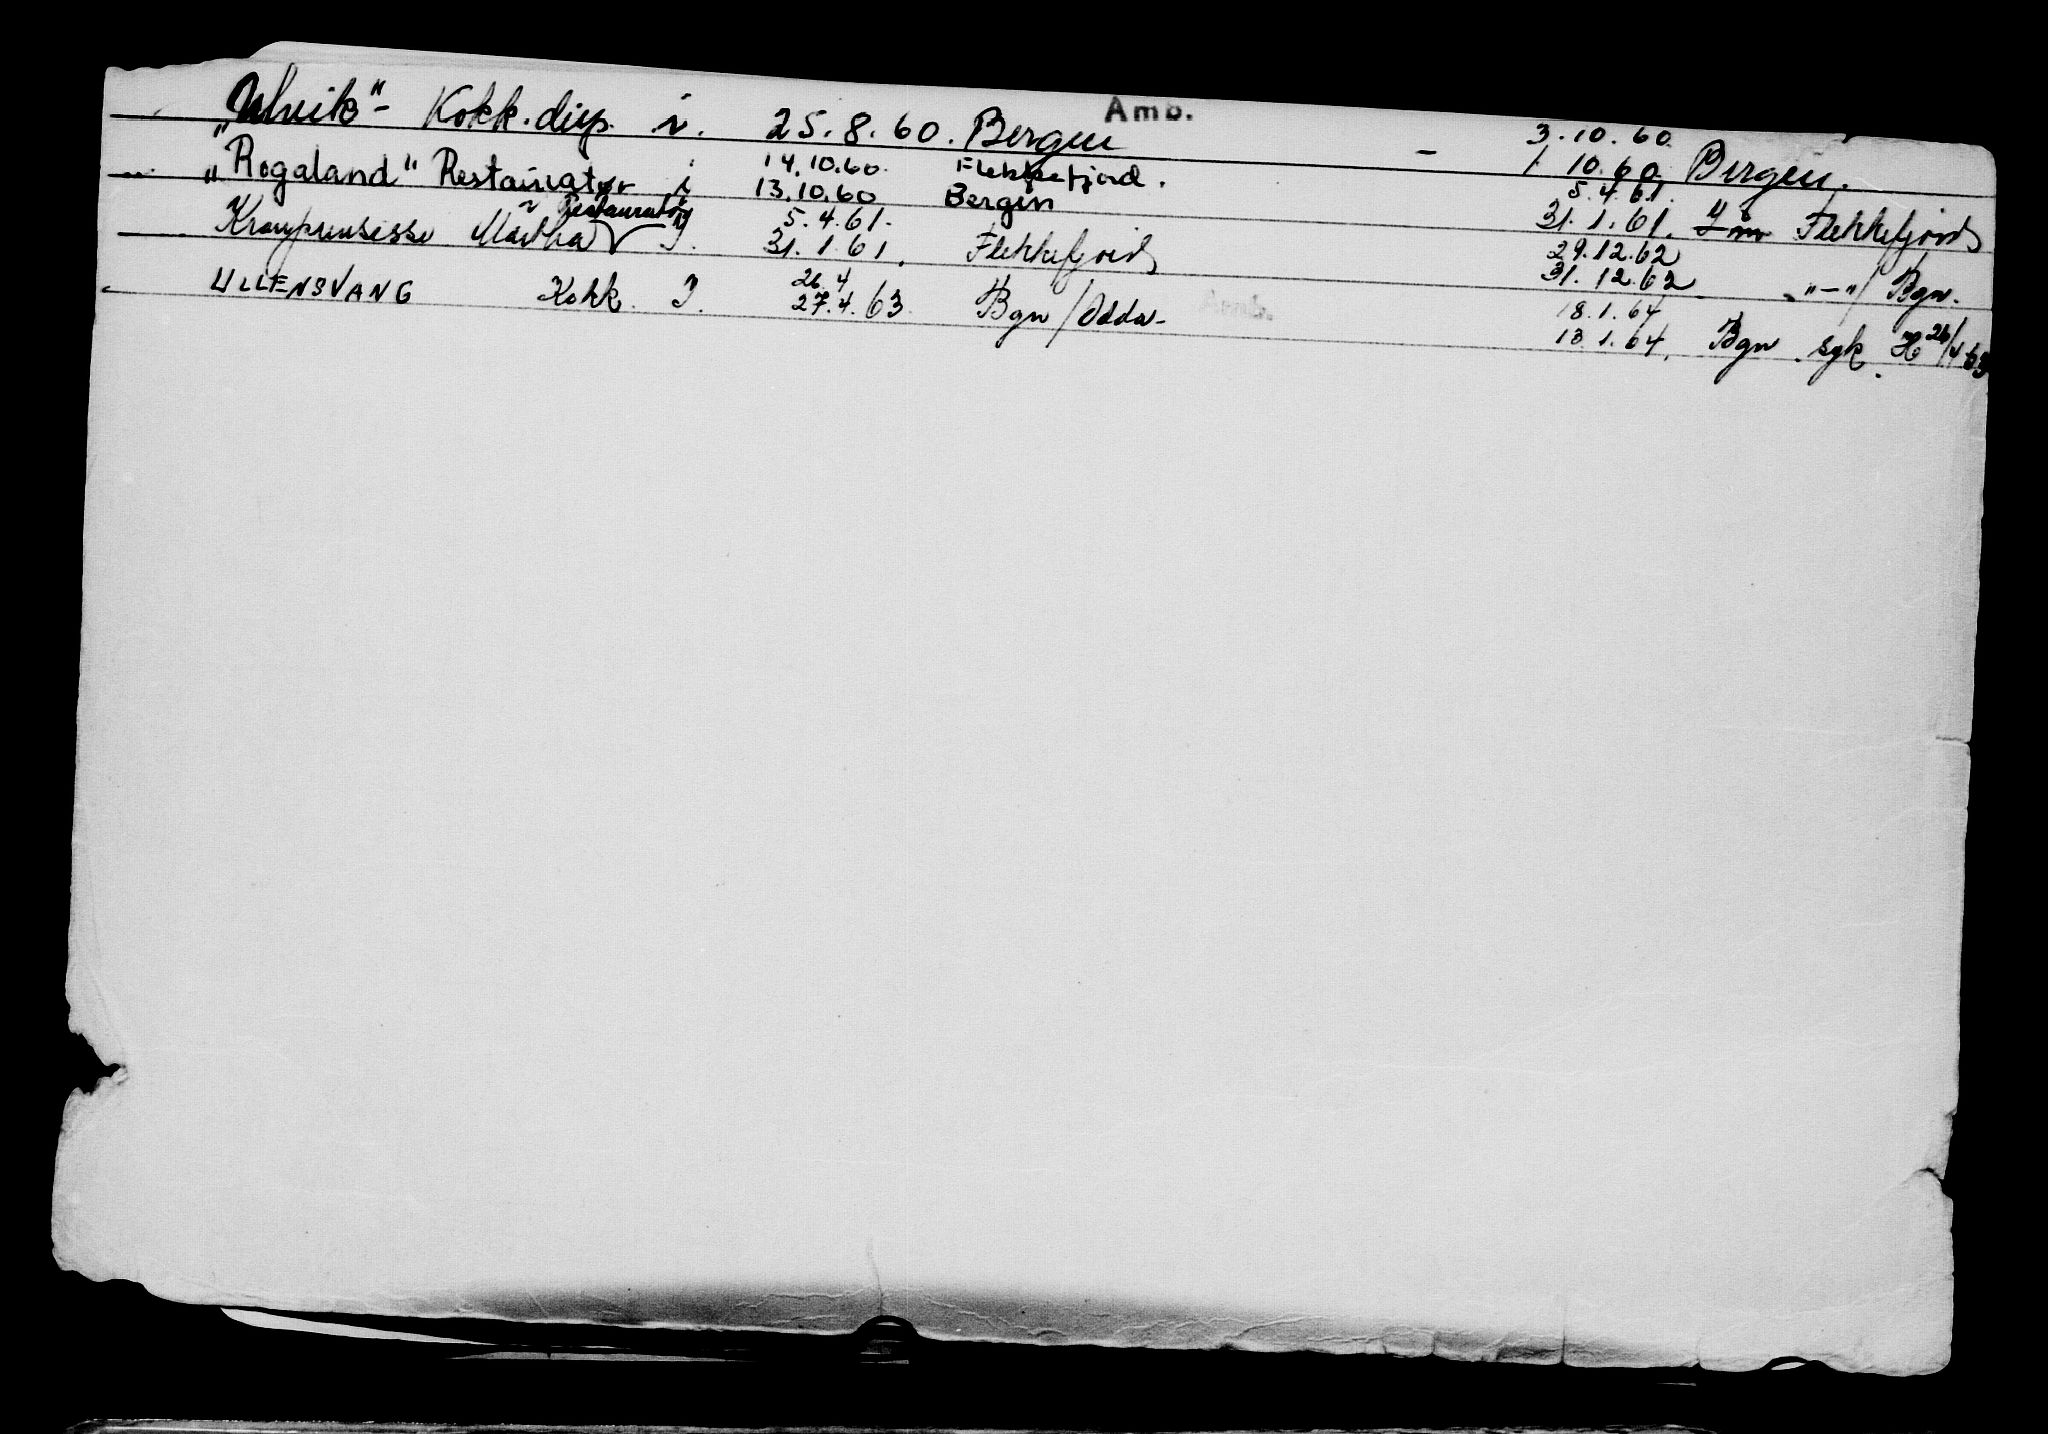 Amb.
"Ulvik" - Kokk. disp. i. 25.8.60. Bergen - 3.10.60.
14.10.60. Flekkefjord. 1 10.60. Bergen.
"Rogaland" Restauratør i 13.10.60 Bergen 5.4.61.
Restauratør 5.4.61. 31.1.61. Flekkefjord
Kronprinsesse Märtha I. 31.1.61. Flekkefjord 29.12.62
26.4 31.12.62 "-"/ Bgn.
ULLENSVANG Kokk I. 27.4.63 Bgn/Odda- Amb. 18.1.64
13.1.64. Bgn. syk. H 26/4 63